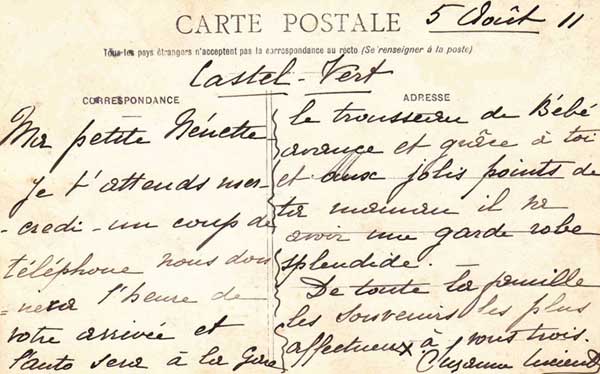 CARTE POSTALE
5 Août 11
Tous les pays étrangers n'acceptent pas la correspondance au recto (Se renseigner à la poste)
Castel-Vert
CORRESPONDANCE
Ma petite Nénette
Je t'attends mer-
credi - un coup de
téléphone nous don
=nera l'heure de
votre arrivée et
l'auto sera à la Gare
ADRESSE
le trousseau de Bébé
avance et grâce à toi
et aux jolis points de
ta maman il va
avoir une garde robe
splendide.
De toute la famille
les souvenirs les plus
affectueux à vous trois.
Suzanne